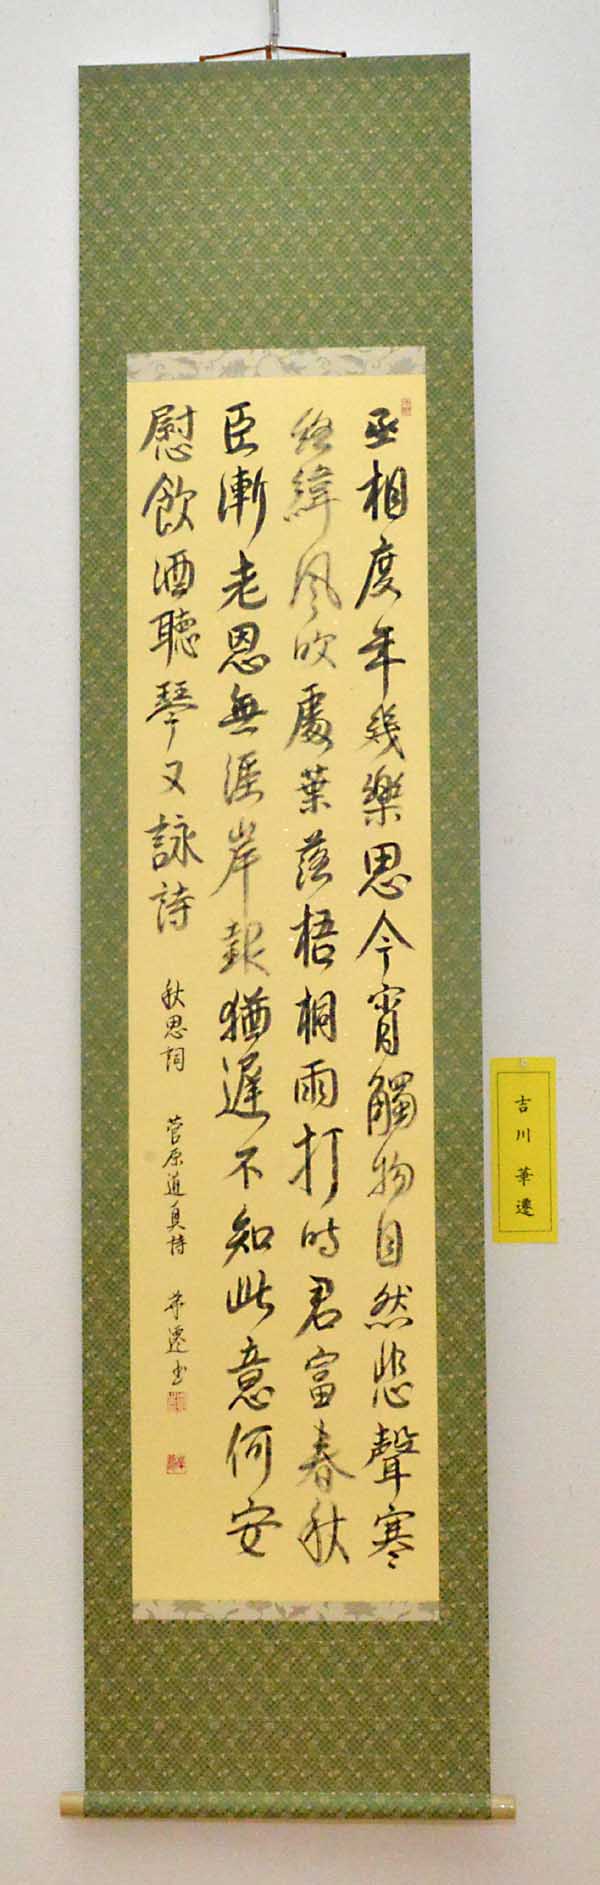 丞相度年幾樂思今宵觸物自然悲聲寒
絡緯風吹處葉落梧桐雨打時君富春秋
臣漸老恩無涯岸報猶遲不知此意何安
慰飲酒聽琴又詠詩
秋思詞 菅原道真詩 華遷書
吉川華遷